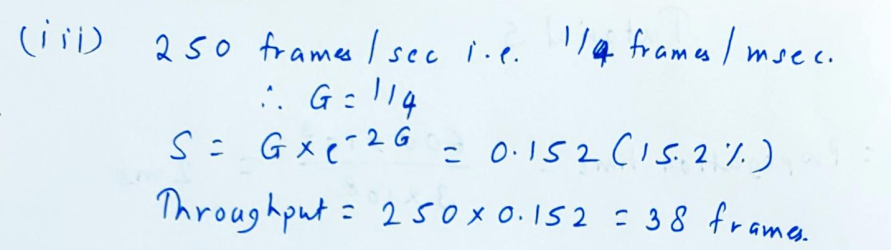 (iii) 250 frames / sec i.e. 1/4 frames / msec.
∴ G = 1/4
S = G x e^-2G = 0.152 (15.2%)
Throughput = 250 x 0.152 = 38 frames.